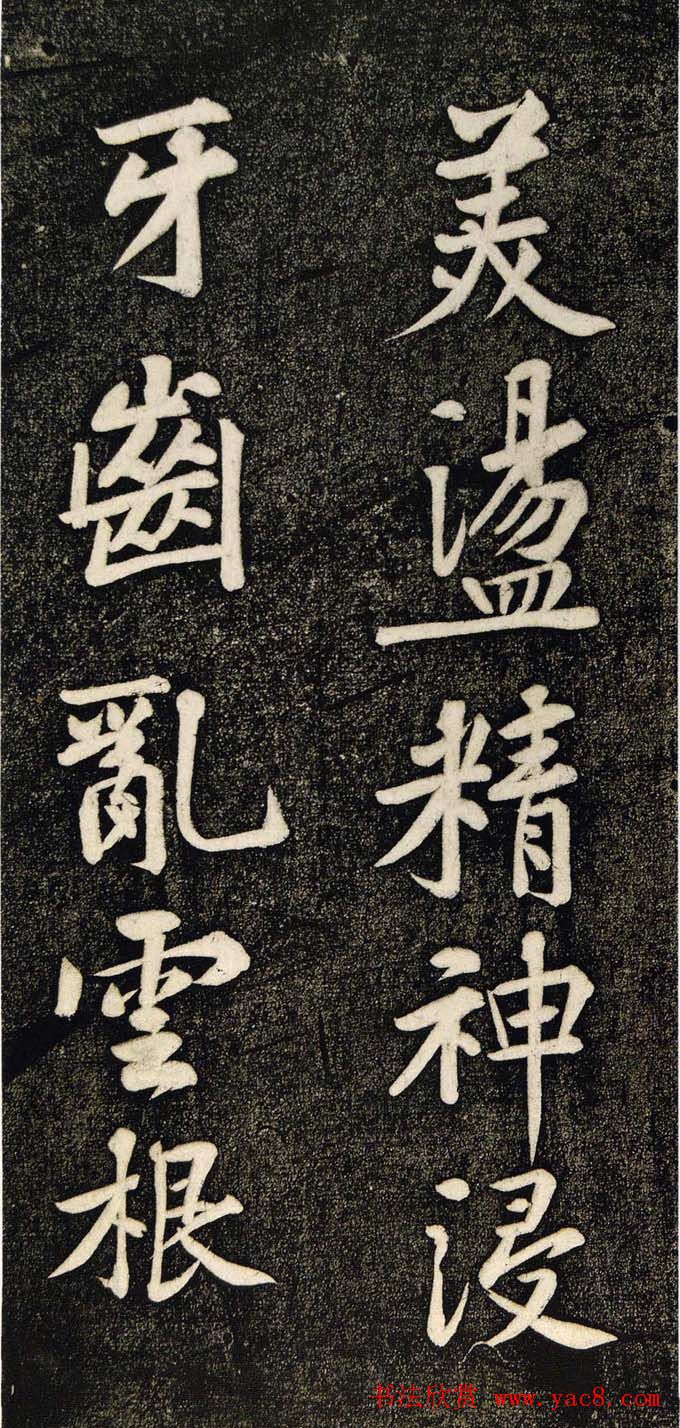 美盪精神浸
牙齒亂雲根
书法欣赏 www.yac8.com